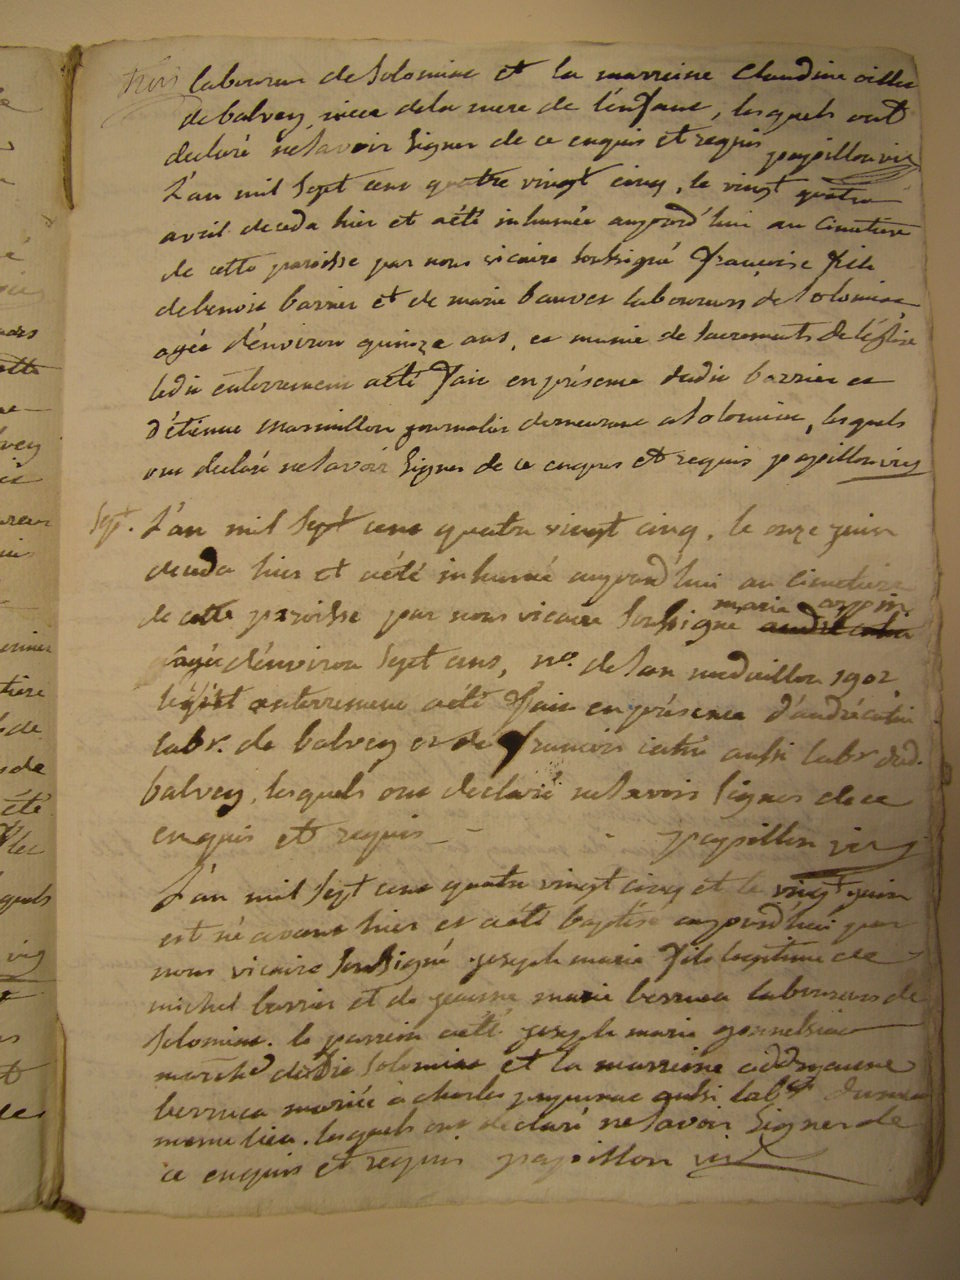 trois laboureur de Solomiac et la marreine Claudine
de balvey, niece de la mere de l'enfant, lesquels ont
declaré ne Savoir Signer de ce enquis et requis papillon vic
L'an mil Sept cent quatre vingt cinq, le vingt quatre
avril deceda hier et aété inhumée aujourd'hui au Cimetiere
de cette paroisse par nous vicaire Soussigné françoise fille
de benoit barrier et de marie laboureurs de Solomiac
agée d'environ quinze ans, et munie de Sacrements de l'église
ledit enterrement aété fait en présence dudit barrier et
d'étienne marmillon journalier demeurant a Solomiac, lesquels
ont declaré ne Savoir Signer de ce enquis et requis papillon vic
Sept. L'an mil Sept cent quatre vingt cinq, le onze juin
deceda hier et aété inhumé aujourd'hui au Cimetiere
marie
de cette paroisse par nous vicaire Soussigné
agée d'environ Sept ans, n.º de Son medaillon 1902
enterrement aété fait en présence d'andré
labr. de balvey et de francois aussi labr dud.
balvey, lesquels ont declaré ne Savoir Signer de ce
enquis et requis - . papillon vic
L'an mil Sept cent quatre vingt cinq et le vingt juin
est né avant hier et aété baptisé aujourd'hui par
nous vicaire Soussigné joseph marie fils legitime de
michel barrier et de jeanne marie berruca laboureurs de
Solomiac. le parrein aété joseph marie
marchd dudit Solomiac et la marreine
berruca mariée à charles aussi labr du
meme lieu. lesquels ont declaré ne Savoir Signer de
ce enquis et requis papillon vic